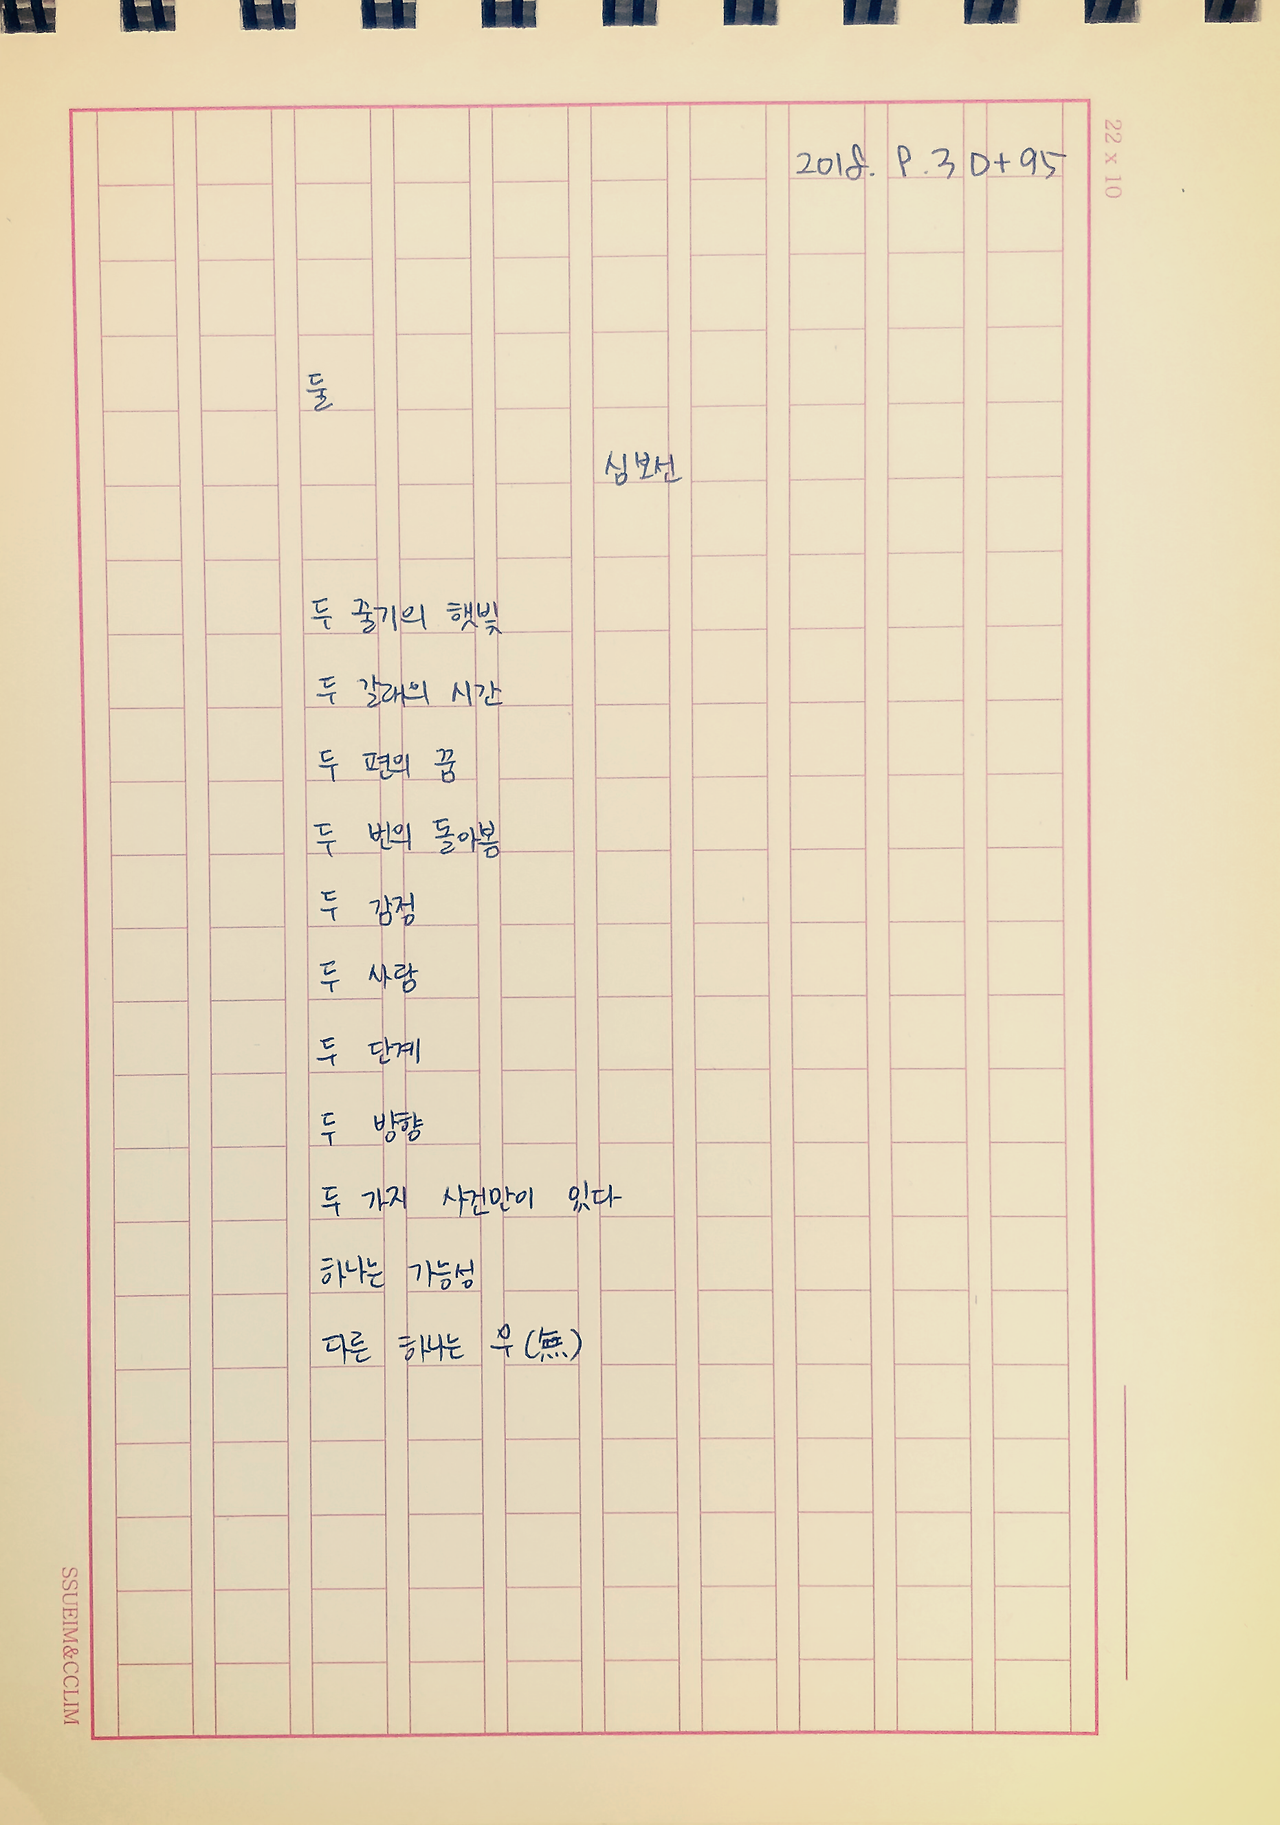 22 x 10
2018. 9. 3 D+95
둘
심보선
두 줄기의 햇빛
두 갈래의 시간
두 편의 꿈
두 번의 돌아봄
두 감정
두 사람
두 단계
두 방향
두 가지 사건만이 있다
하나는 가능성
다른 하나는 무(無)
SSUEIM&CCLIM